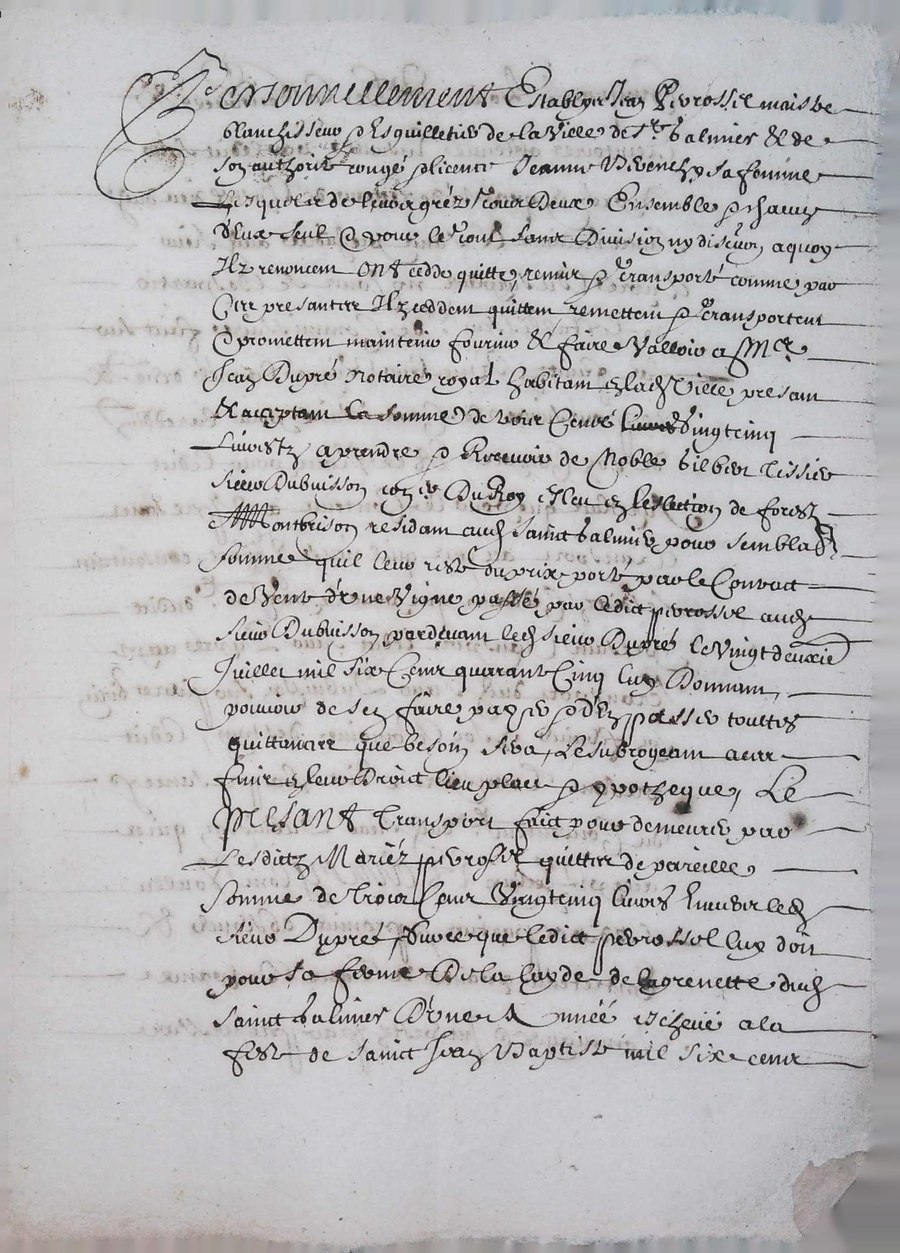 Personnellement Establys Jean Peyrossel maistre
blanchisseur & Esquilletier de la Ville de St Galmier & de
son authorité congé & licence Jeanne sa femme
Lesquels de leurs grez Tour Deux Ensemble & chacun
d'Eux seul & pour le Tout sans Division ny discution a quoy
Ilz renoncent ont ceddé quitté remis & Transporté comme par
Ces presantes Ilz ceddent quittent remettent & Transportent
& promettent maintenir fournir & faire Valloir a Mre
Jean Dupré Notaire royal habitant en lad Ville presant
& acceptant la somme de trois Centz livres Vingtcinq
Livres tz a prendre & Recevoir de Noble Gilbert Tissier
sieur Dubuisson con.er Du Roy Esleu en leslection de forestz
Montbrison residant aud sainct Galmier pour semblable
somme quil leur reste du prix porté par le Contract
de Vente d'une Vigne passé par ledict peyrossel aud
sieur Dubuisson pardevant led sieur Dupré le Vingtdeuxie
Juillet mil six Cent quarante Cinq luy Donnant
pouvoir de sen faire payer & d'En passer touttes
quittances que besoin sera, Le subrogeant a ces
fins en leur Droict lieu place & ypotheque, Le
presant Transport faict pour demeurer par
Lesdictz Mariéz peyrossel quittes de pareille
somme de Trois Cent Vingtcinq livres Envers led
sieur Dupré, sur ce que ledict peyrossel luy doit
pour sa ferme De la layde de la grenette dud
sainct Galmier D'une Année Escheue a la
feste de sainct Jean Baptiste mil six cent